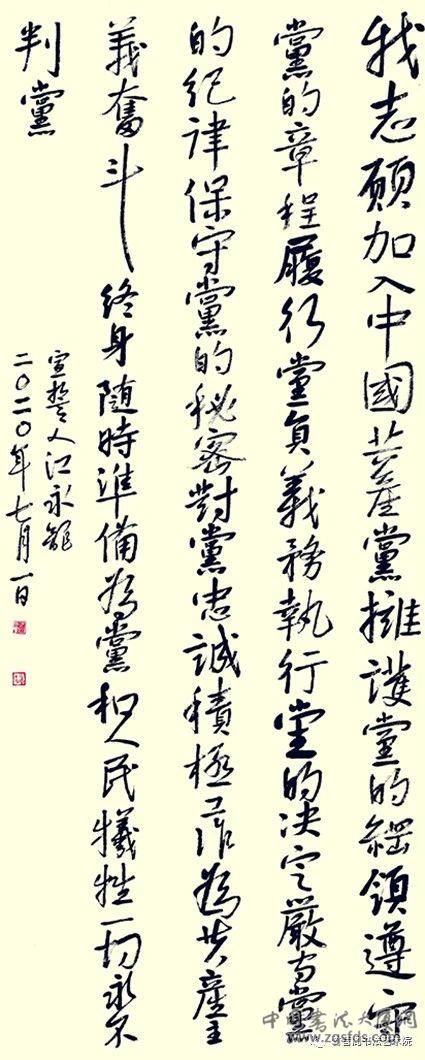 我志願加入中國共產黨擁護党的綱領遵守
黨的章程履行党員義務執行党的决定嚴守黨
的紀律保守黨的秘密對黨忠誠積極工作為共產主
義奮斗終身隨時準備為黨和人民犧牲一切永不
判黨
宣誓人江永
二〇二〇年七月一日
www.zgsfds.com